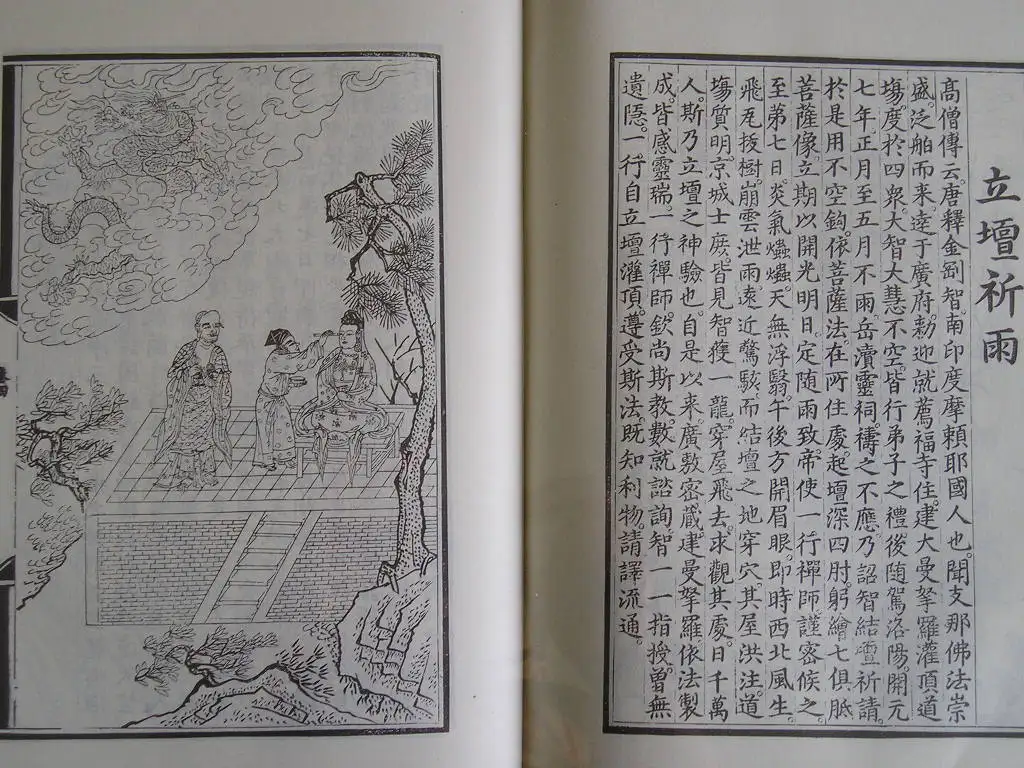 立壇祈雨
高僧傳云。唐釋金剛智。南印度摩賴耶國人也。聞支那佛法崇
盛。泛舶而來。逹于廣府。勅迎就薦福寺住。建大曼拏羅灌頂道
場。度於四衆。大智大慧不空。皆行弟子之禮。後随駕洛陽。開元
七年。正月至五月不雨。岳瀆靈祠。禱之不應。乃詔智結壇祈請。
於是用不空鈎。依菩薩法。在所住處。起壇深四肘。躬繪七俱胝
菩薩像。立期以開光明日定随雨致。帝使一行禪師謹密候之。
至苐七日。炎氣爞爞。天無浮翳。午後方開眉眼。即時西北風生。
飛瓦拔樹。崩雲泄雨。遠近驚駭。而結壇之地。穿穴其屋。洪注道
塲。質明。京城士庻皆見智獲一龍。穿屋飛去。求觀其處。日千萬
人。斯乃立壇之神驗也。自是以來。廣敷密藏。建曼拏羅。依法製
成。皆感靈瑞。一行禪師。欽尚斯教。數就諮詢。智一一指授。曾無
遺隱。一行自立壇灌頂。遵受斯法。既知利物。請譯流通。